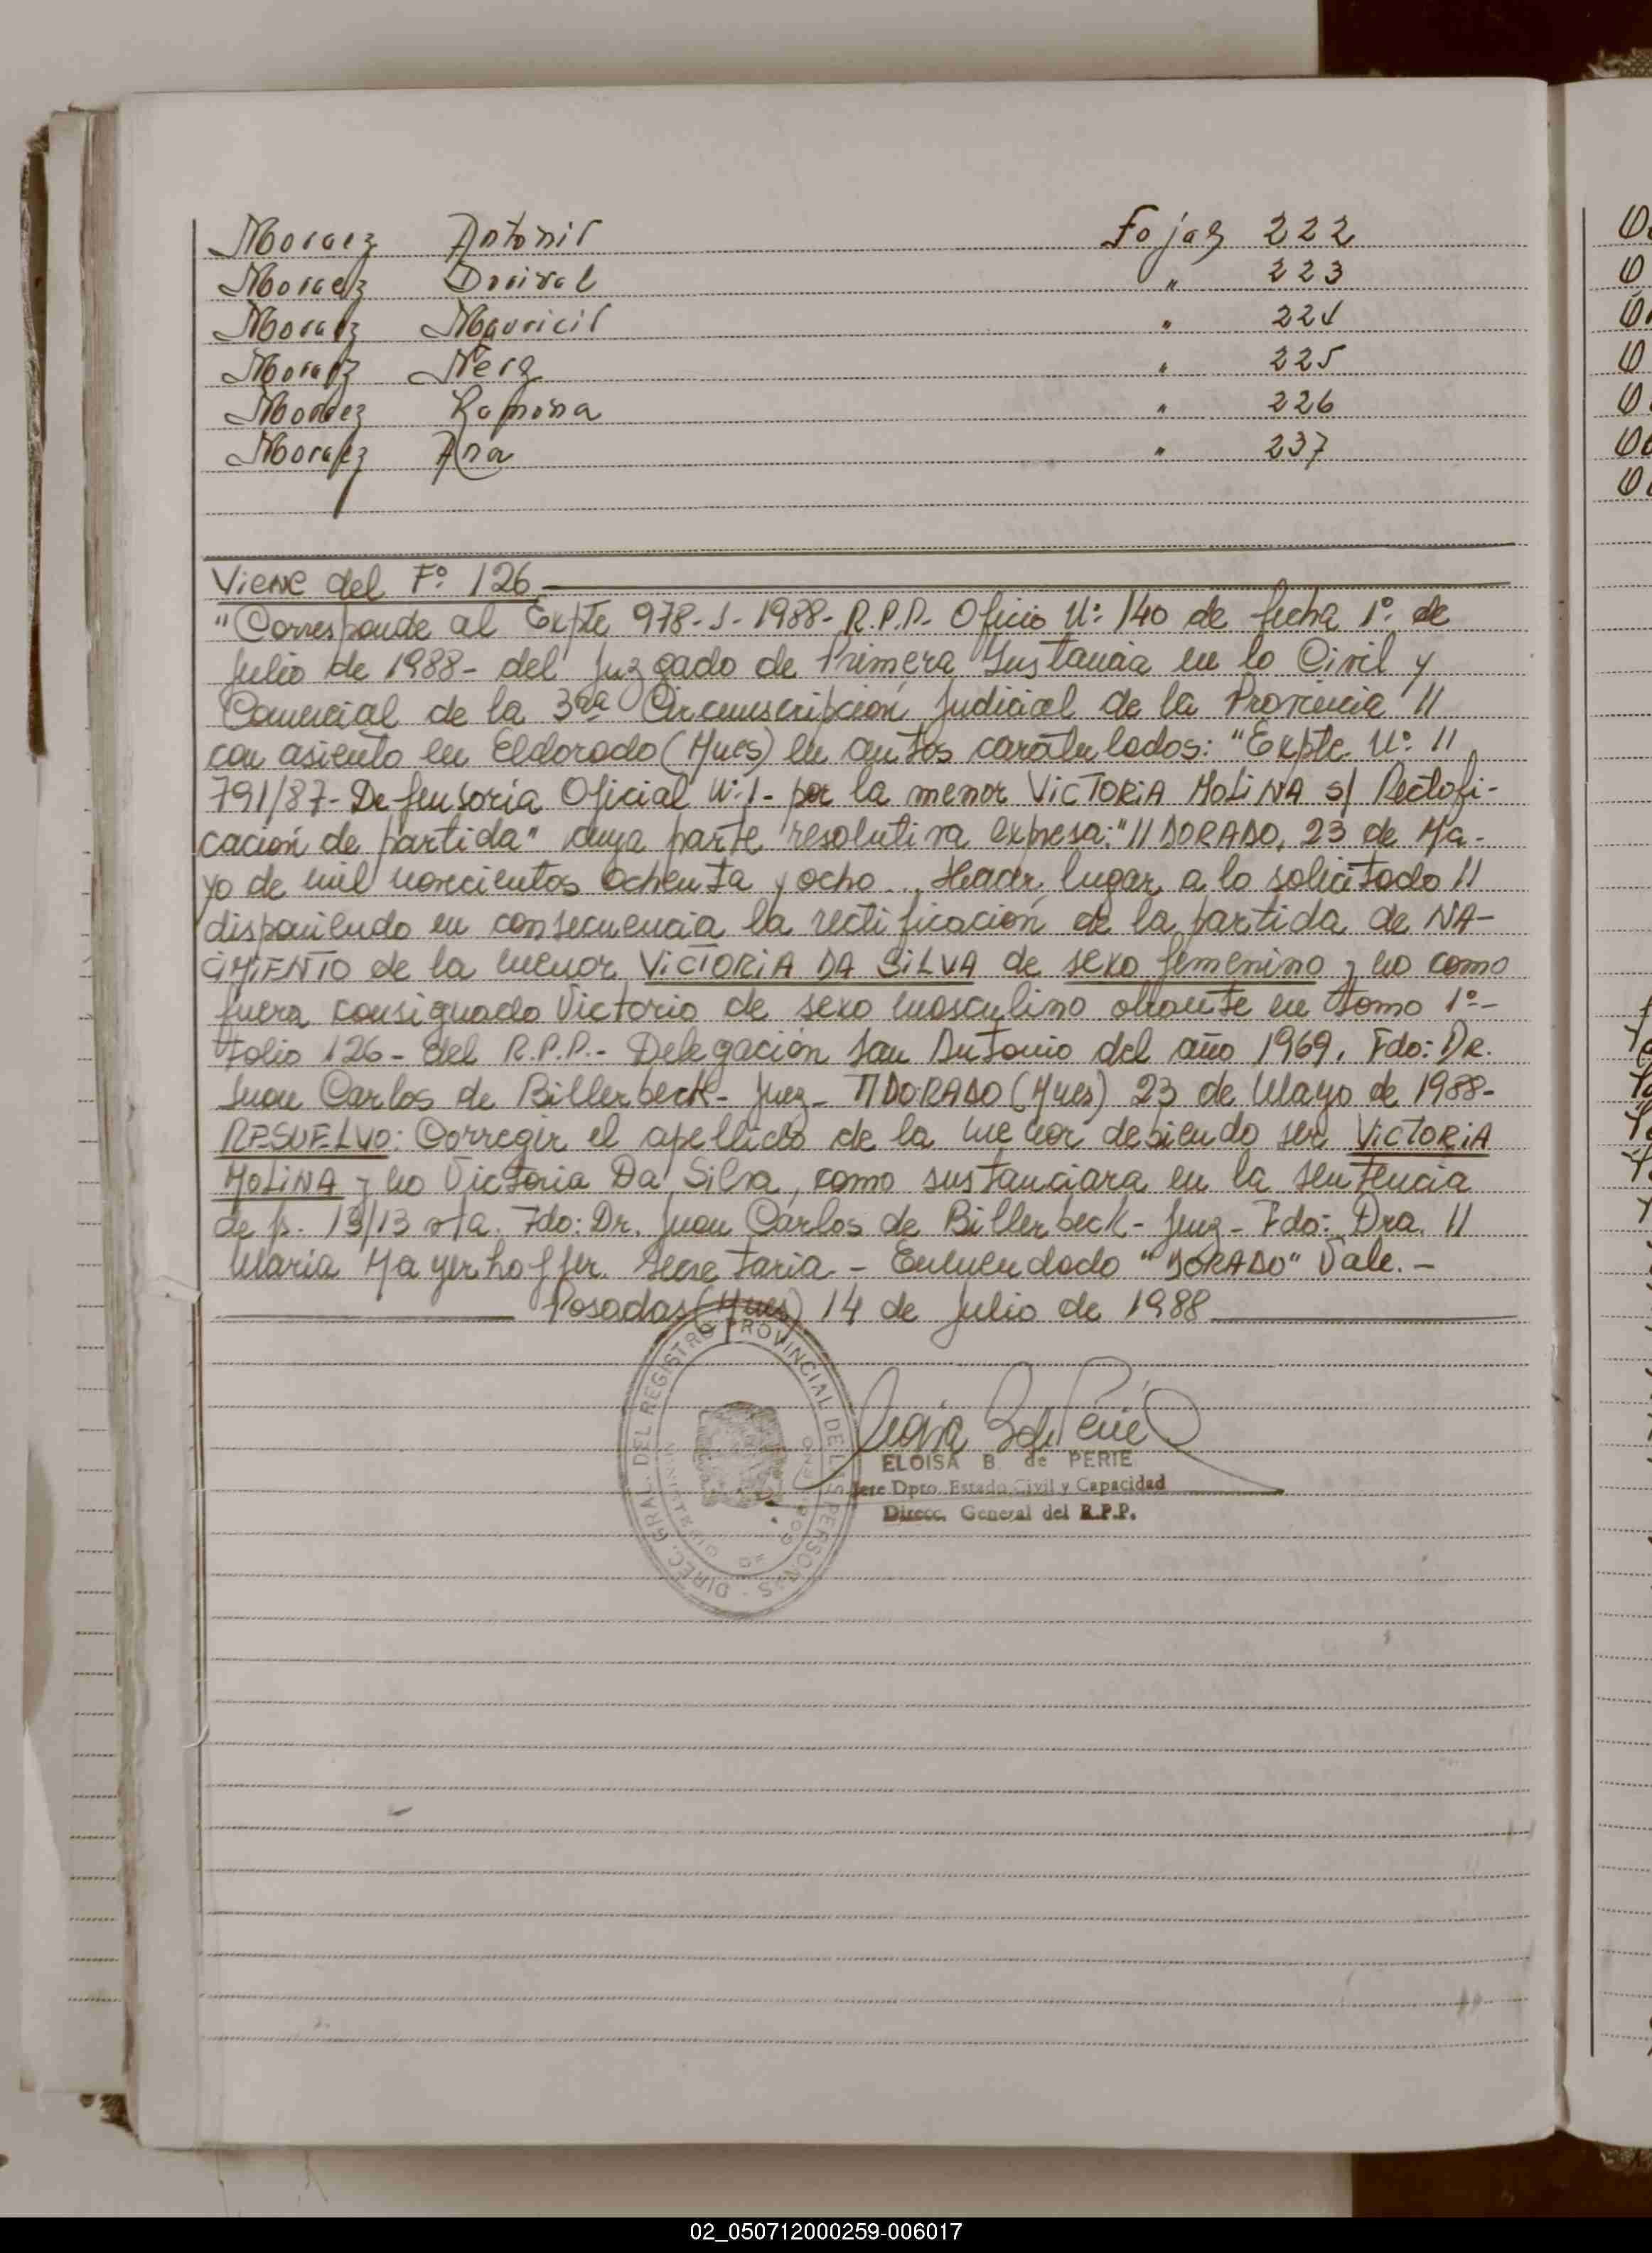 Moraez Antonio Fojas 222
Moraez Dorival " 223
Moraez Mauricio " 224
Moraez Nera " 225
Moraez Ramona " 226
Moraez Ana " 237
Viene del Fº 126
"Corresponde al Expte 978-J-1988- R.P.P.- Oficio Nº 140 de fecha 1º de
Julio de 1988- del Juzgado de Primera Instancia en lo Civil y
Comercial de la 3ra Circunscripción Judicial de la Provincia //
con asiento en Eldorado (Mnes) en autos caratulados: "Expte. Nº //
791/87- Defensoría Oficial Nº 1- por la menor VICTORIA MOLINA s/ Rectofi-
cación de partida" cuya parte resolutiva expresa: "//DORADO, 23 de Ma-
yo de mil novecientos ochenta y ocho... Hacer lugar a lo solicitado //
disponiendo en consecuencia la rectificación de la partida de NA-
CIMIENTO de la menor VICTORIA DA SILVA de sexo femenino y no como
fuera consignado Victorio de sexo masculino obrante en Tomo 1º-
Folio 126- del R.P.P.- Delegación San Antonio del año 1969. Fdo: DR.
Juan Carlos de Billerbeck- Juez- //DORADO (Mnes) 23 de Mayo de 1988-
RESUELVO: Corregir el apellido de la menor debiendo ser VICTORIA
MOLINA y no Victoria Da Silva, como sustanciara en la sentencia
de fs. 13/13 vta. Fdo: Dr. Juan Carlos de Billerbeck- Juez- Fdo: Dra. //
María Mayerhoffer. Secretaria - Enmendado "DORADO" Vale.-
Posadas (Mnes) 14 de Julio de 1988
DIREC. GRAL. DEL REGISTRO PROVINCIAL DE LAS PERSONAS
ELOISA B de PERIE
Jefe Dpto. Estado Civil y Capacidad
Direcc. General del R.P.P.
02_050712000259-006017